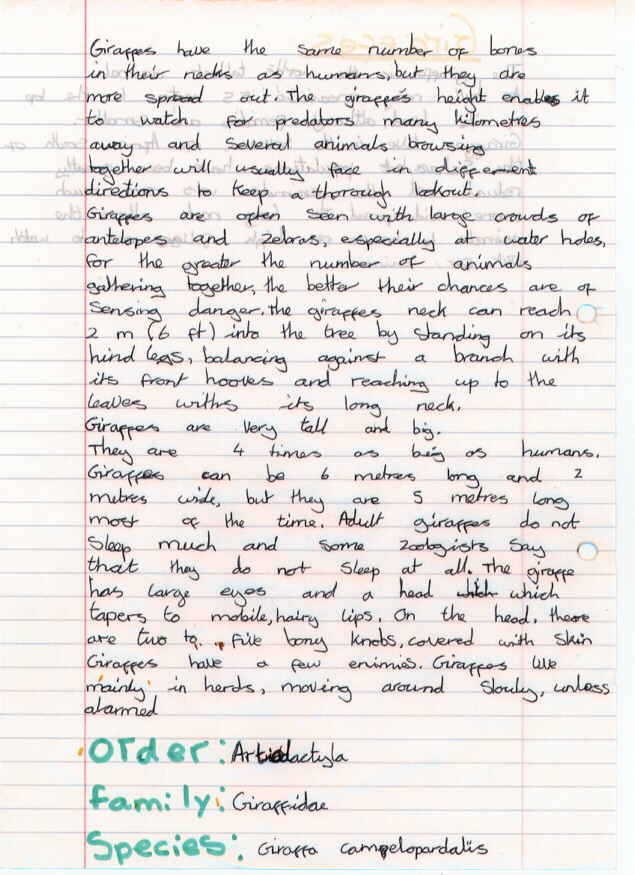 Giraffes have the same number of bones
in their necks as humans, but they are
more spread out. The giraffe's height enables it
to watch for predators many kilometres
away and several animals browsing
together will usually face in different
directions to keep a thorough lookout.
Giraffes are often seen with large crowds of
antelopes and zebras, especially at water holes,
for the greater the number of animals
gathering together, the better their chances are of
sensing danger. The giraffes neck can reach
2 m (6 ft) into the tree by standing on its
hind legs, balancing against a branch with
its front hooves and reaching up to the
leaves withs its long neck.
Giraffes are very tall and big.
They are 4 times as big as humans.
Giraffes can be 6 metres long and 2
metres wide, but they are 5 metres long
most of the time. Adult giraffes do not
sleep much and some zoologists say
that they do not sleep at all. The giraffe
has large eyes and a head which
tapers to mobile, hairy lips. On the head, there
are two to five bony knobs, covered with skin
Giraffes have a few enimies. Giraffes live
mainly in herds, moving around slowly, unless
alarmed
Order: Artiodactyla
family: Giraffidae
Species: Giraffa camelopardalis